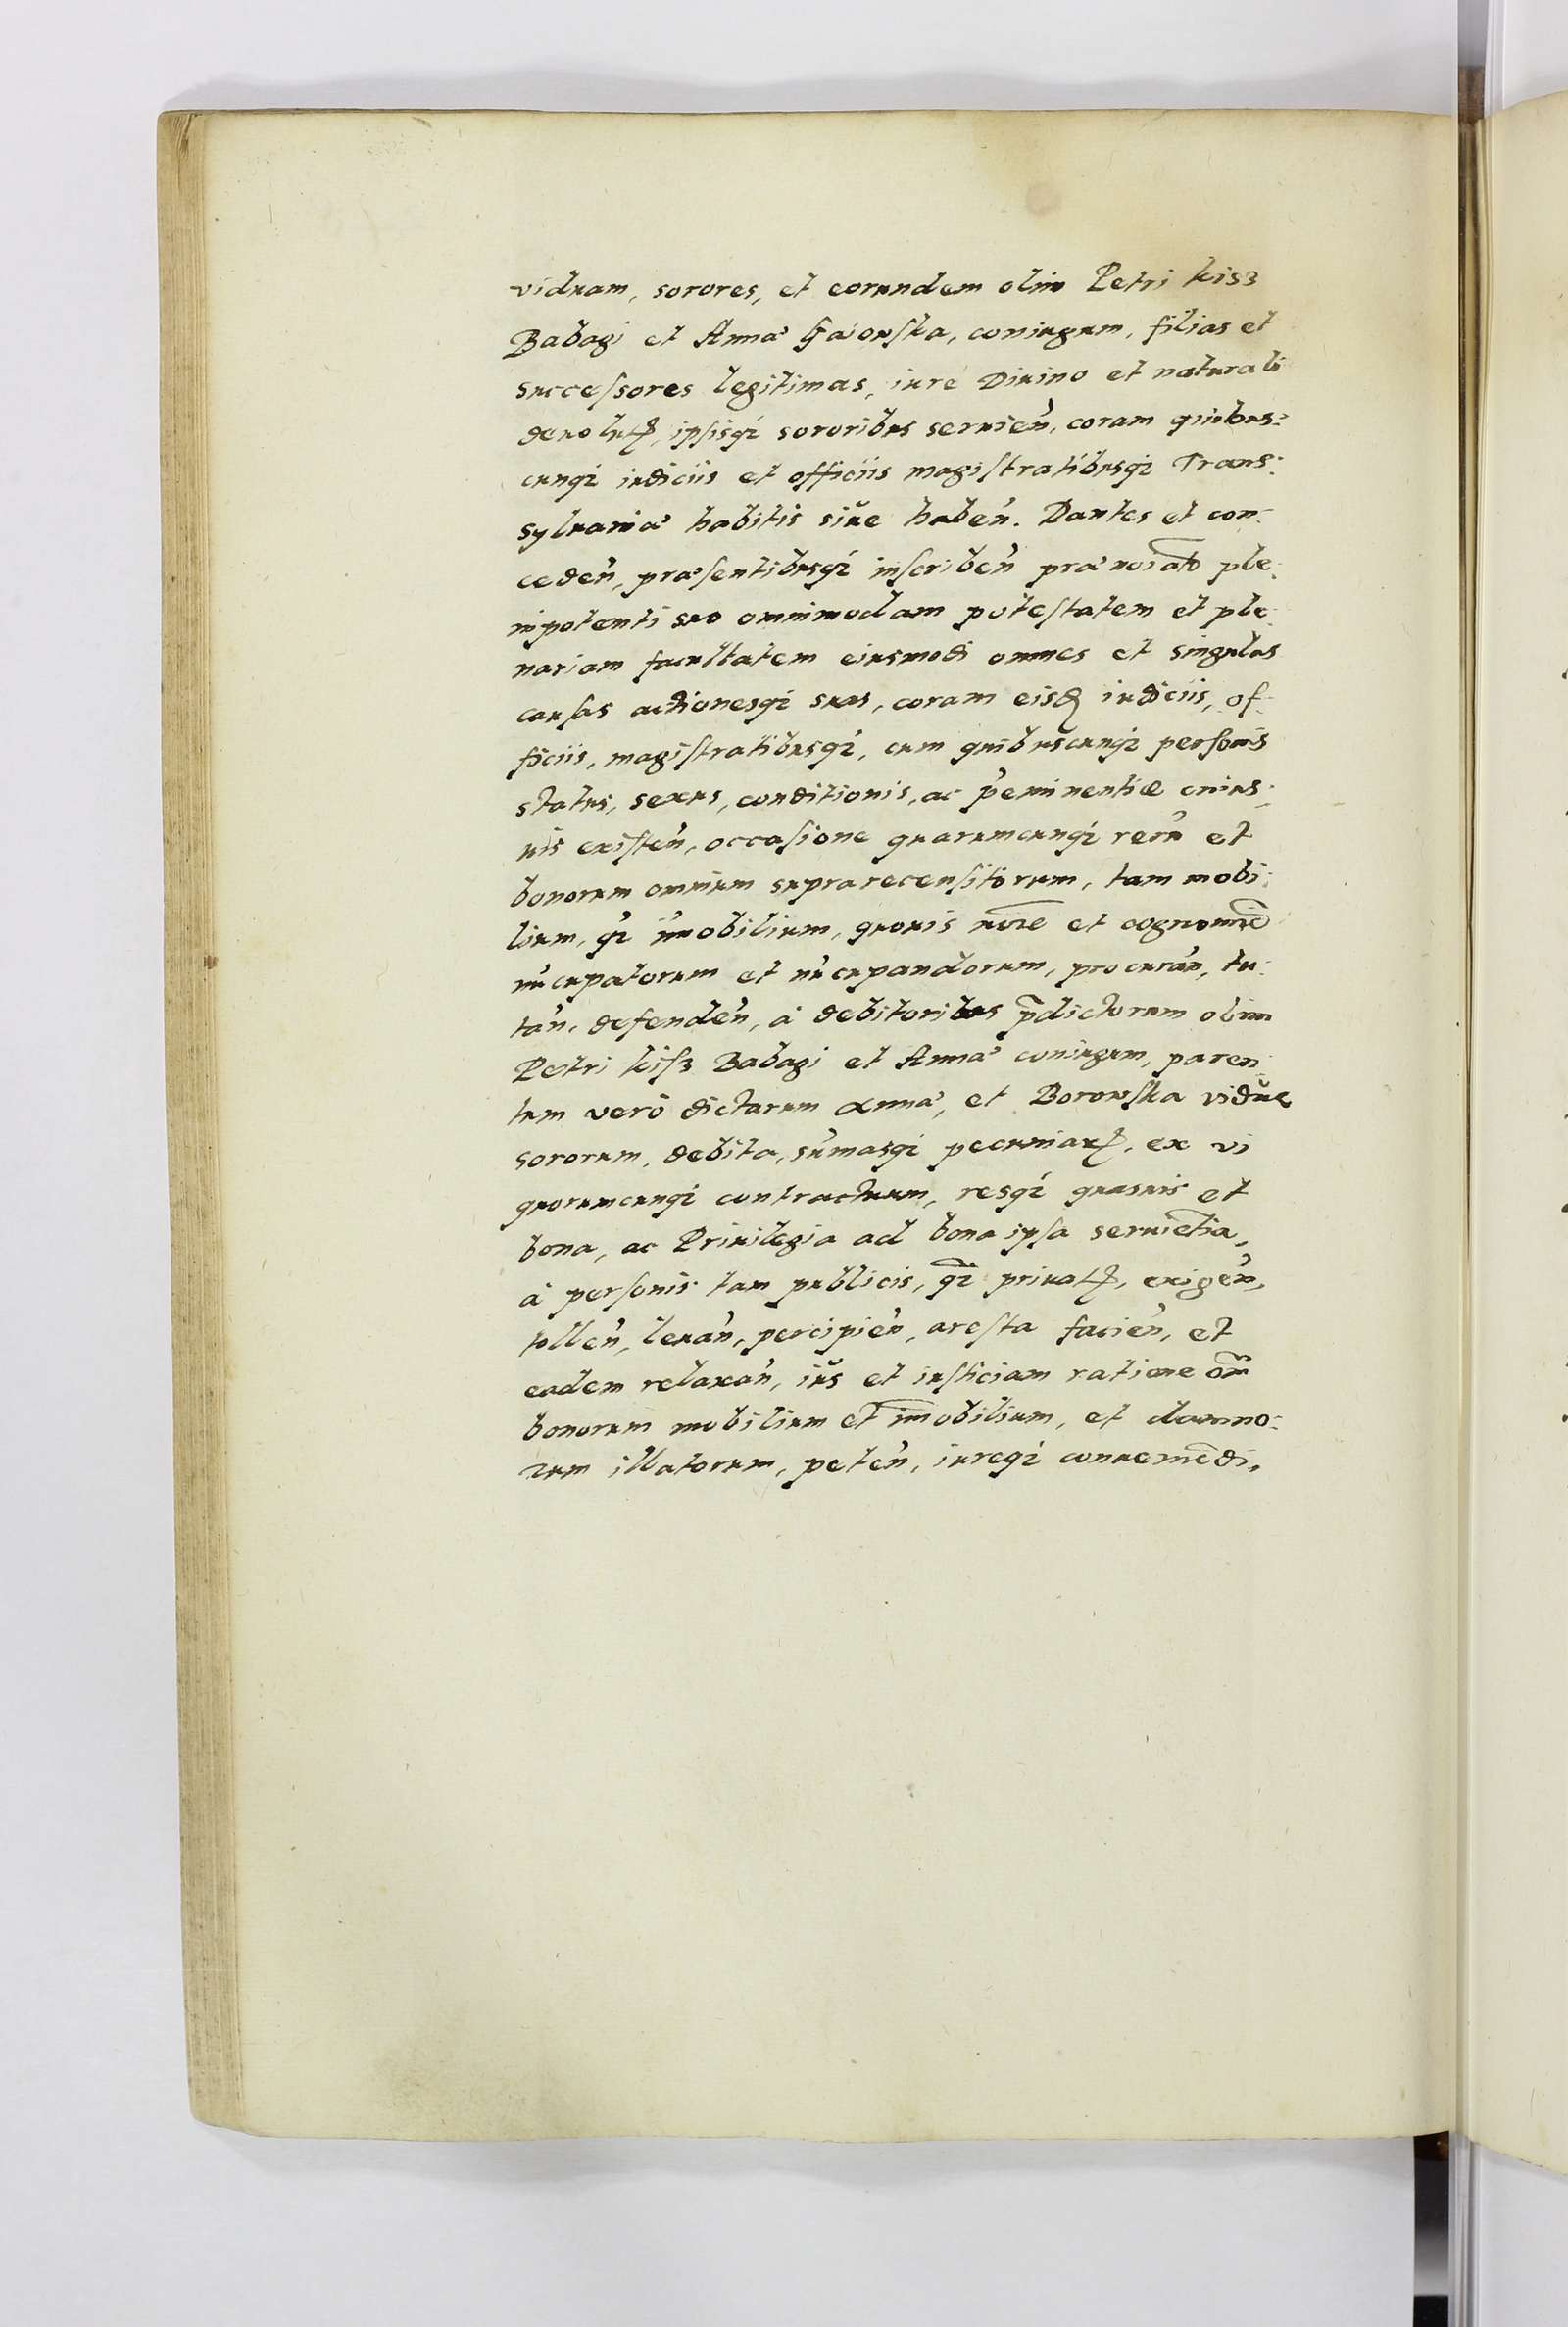 viduam, sorores, et eorundem olim Petri kisz
Babagi et Annæ Gaiouska, coniugum, filias et
successores legitimas, iure Diuino et naturali
deuolutꝭ, ipsisqȝ sororibus seruieñ, coram quibus:
cunqȝ iudiciis et officiis magistratibusqȝ Trans:
syluaniæ habitis siue habeñ. Dantes et con:
cedeñ, præsentibusqȝ inscribeñ prænoĩato ple:
nipotenti suo omnimodam potestatem et ple:
nariam facultatem eiusmodi omnes et singulas
causas actionesqȝ suas, coram eisdꝭ iudiciis, of:
ficiis, magistratibusqȝ, cum quibuscunqȝ personis
status, sexus, conditionis, ac p̃eminentiæ cuius:
uis existeñ, occasione quarumcunqȝ rerũ et
bonorum omnium suprarecensitorum, tam mobi:
lium, qȝ im̃obilium, quouis noĩe et cognomĩe
nũcupatorum et nũcupandorum, procurañ, tu:
tañ, defendeñ, à debitoribus p̃dictorum olim
Petri kisz Babagi et Annæ coniugum, paren:
tum verò dictarum Annæ, et Borowska viduæ
sororum, debita, sum̃asqȝ pecuniarꝭ, ex vi
quorumcunqȝ contractuum, resqȝ quasuis et
bona, ac Priuilegia ad bona ipsa seruiẽtia,
à personis tam publicis, qȝ̃ priuatꝭ, exigeñ,
tolleñ, leuañ, percipieñ, aresta facieñ, et
eadem relaxañ, iŭs et iusticiam ratione oĩm
bonorum mobilium et im̃obilium, et damno:
rum illatorum, peteñ, iureqȝ conueniẽdi,